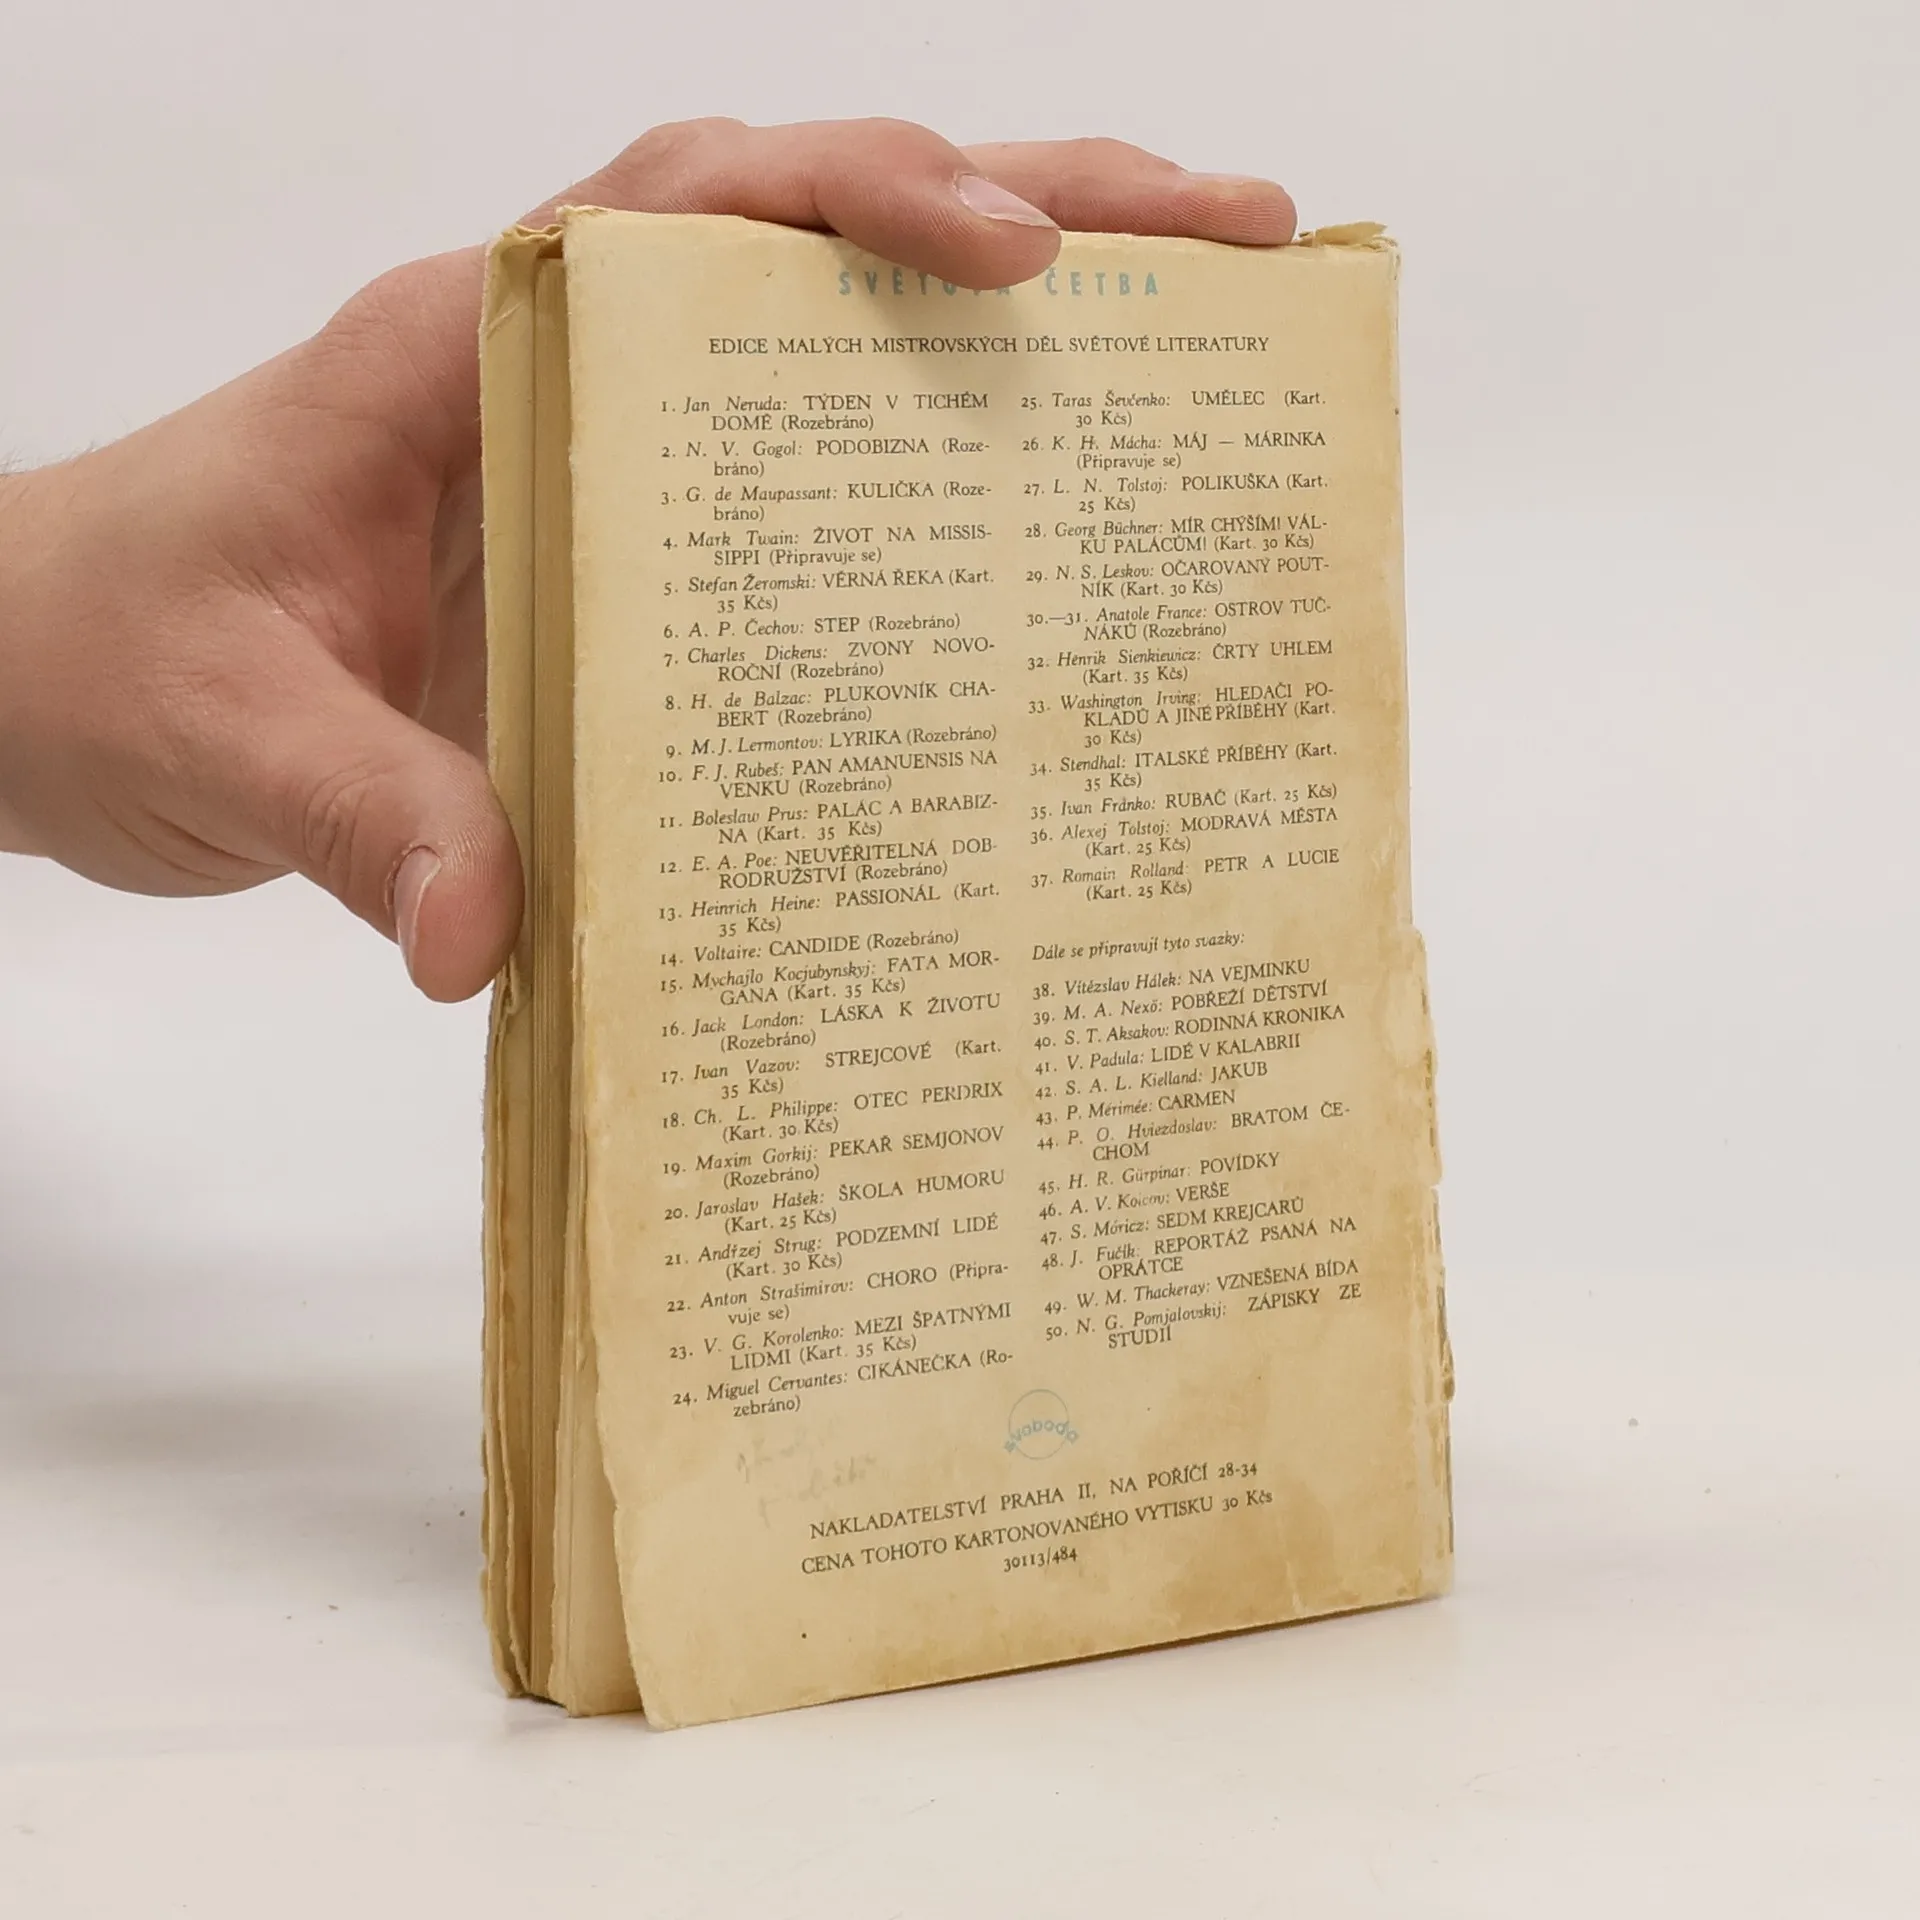 SVĚTOVÁ ČETBA
EDICE MALÝCH MISTROVSKÝCH DĚL SVĚTOVÉ LITERATURY
1. Jan Neruda: TÝDEN V TICHÉM
DOMĚ (Rozebráno)
2. N. V. Gogol: PODOBIZNA (Roze-
bráno)
3. G. de Maupassant: KULIČKA (Roze-
bráno)
4. Mark Twain: ŽIVOT NA MISSIS-
SIPPI (Připravuje se)
5. Stefan Žeromski: VĚRNÁ ŘEKA (Kart.
35 Kčs)
6. A. P. Čechov: STEP (Rozebráno)
7. Charles Dickens: ZVONY NOVO-
ROČNÍ (Rozebráno)
8. H. de Balzac: PLUKOVNÍK CHA-
BERT (Rozebráno)
9. M. J. Lermontov: LYRIKA (Rozebráno)
10. F. J. Rubeš: PAN AMANUENSIS NA
VENKU (Rozebráno)
11. Boleslaw Prus: PALÁC A BARABIZ-
NA (Kart. 35 Kčs)
12. E. A. Poe: NEUVĚŘITELNÁ DOB-
RODRUŽSTVÍ (Rozebráno)
13. Heinrich Heine: PASSIONÁL (Kart.
35 Kčs)
14. Voltaire: CANDIDE (Rozebráno)
15. Mychajlo Kocjubynskyj: FATA MOR-
GANA (Kart. 35 Kčs)
16. Jack London: LÁSKA K ŽIVOTU
(Rozebráno)
17. Ivan Vazov: STREJCOVÉ (Kart.
35 Kčs)
18. Ch. L. Philippe: OTEC PERDRIX
(Kart. 30 Kčs)
19. Maxim Gorkij: PEKAŘ SEMJONOV
(Rozebráno)
20. Jaroslav Hašek: ŠKOLA HUMORU
(Kart. 25 Kčs)
21. Andřzej Strug: PODZEMNÍ LIDÉ
(Kart. 30 Kčs)
22. Anton Strašimirov: CHORO (Připra-
vuje se)
23. V. G. Korolenko: MEZI ŠPATNÝMI
LIDMI (Kart. 35 Kčs)
24. Miguel Cervantes: CIKÁNEČKA (Ro-
zebráno)
25. Taras Ševčenko: UMĚLEC (Kart.
30 Kčs)
26. K. H. Mácha: MÁJ — MÁRINKA
(Připravuje se)
27. L. N. Tolstoj: POLIKUŠKA (Kart.
25 Kčs)
28. Georg Büchner: MÍR CHÝŠÍM! VÁL-
KU PALÁCŮM! (Kart. 30 Kčs)
29. N. S. Leskov: OČAROVANÝ POUT-
NÍK (Kart. 30 Kčs)
30.—31. Anatole France: OSTROV TUČ-
ŇÁKŮ (Rozebráno)
32. Henrik Sienkiewicz: ČRTY UHLEM
(Kart. 35 Kčs)
33. Washington Irving: HLEDAČI PO-
KLADŮ A JINÉ PŘÍBĚHY (Kart.
30 Kčs)
34. Stendhal: ITALSKÉ PŘÍBĚHY (Kart.
35 Kčs)
35. Ivan Franko: RUBAČ (Kart. 25 Kčs)
36. Alexej Tolstoj: MODRAVÁ MĚSTA
(Kart. 25 Kčs)
37. Romain Rolland: PETR A LUCIE
(Kart. 25 Kčs)
Dále se připravují tyto svazky:
38. Vítězslav Hálek: NA VEJMINKU
39. M. A. Nexö: POBŘEŽÍ DĚTSTVÍ
40. S. T. Aksakov: RODINNÁ KRONIKA
41. V. Padula: LIDÉ V KALABRII
42. S. A. L. Kielland: JAKUB
43. P. Mérimée: CARMEN
44. P. O. Hviezdoslav: BRATOM ČE-
CHOM
45. H. R. Gürpinar: POVÍDKY
46. A. V. Kolcov: VERŠE
47. S. Móricz: SEDM KREJCARŮ
48. J. Fučík: REPORTÁŽ PSANÁ NA
OPRÁTCE
49. W. M. Thackeray: VZNEŠENÁ BÍDA
50. N. G. Pomjalovskij: ZÁPISKY ZE
STUDIÍ
svoboda
NAKLADATELSTVÍ PRAHA II, NA POŘÍČÍ 28-34
CENA TOHOTO KARTONOVANÉHO VYTISKU 30 Kčs
30113/484